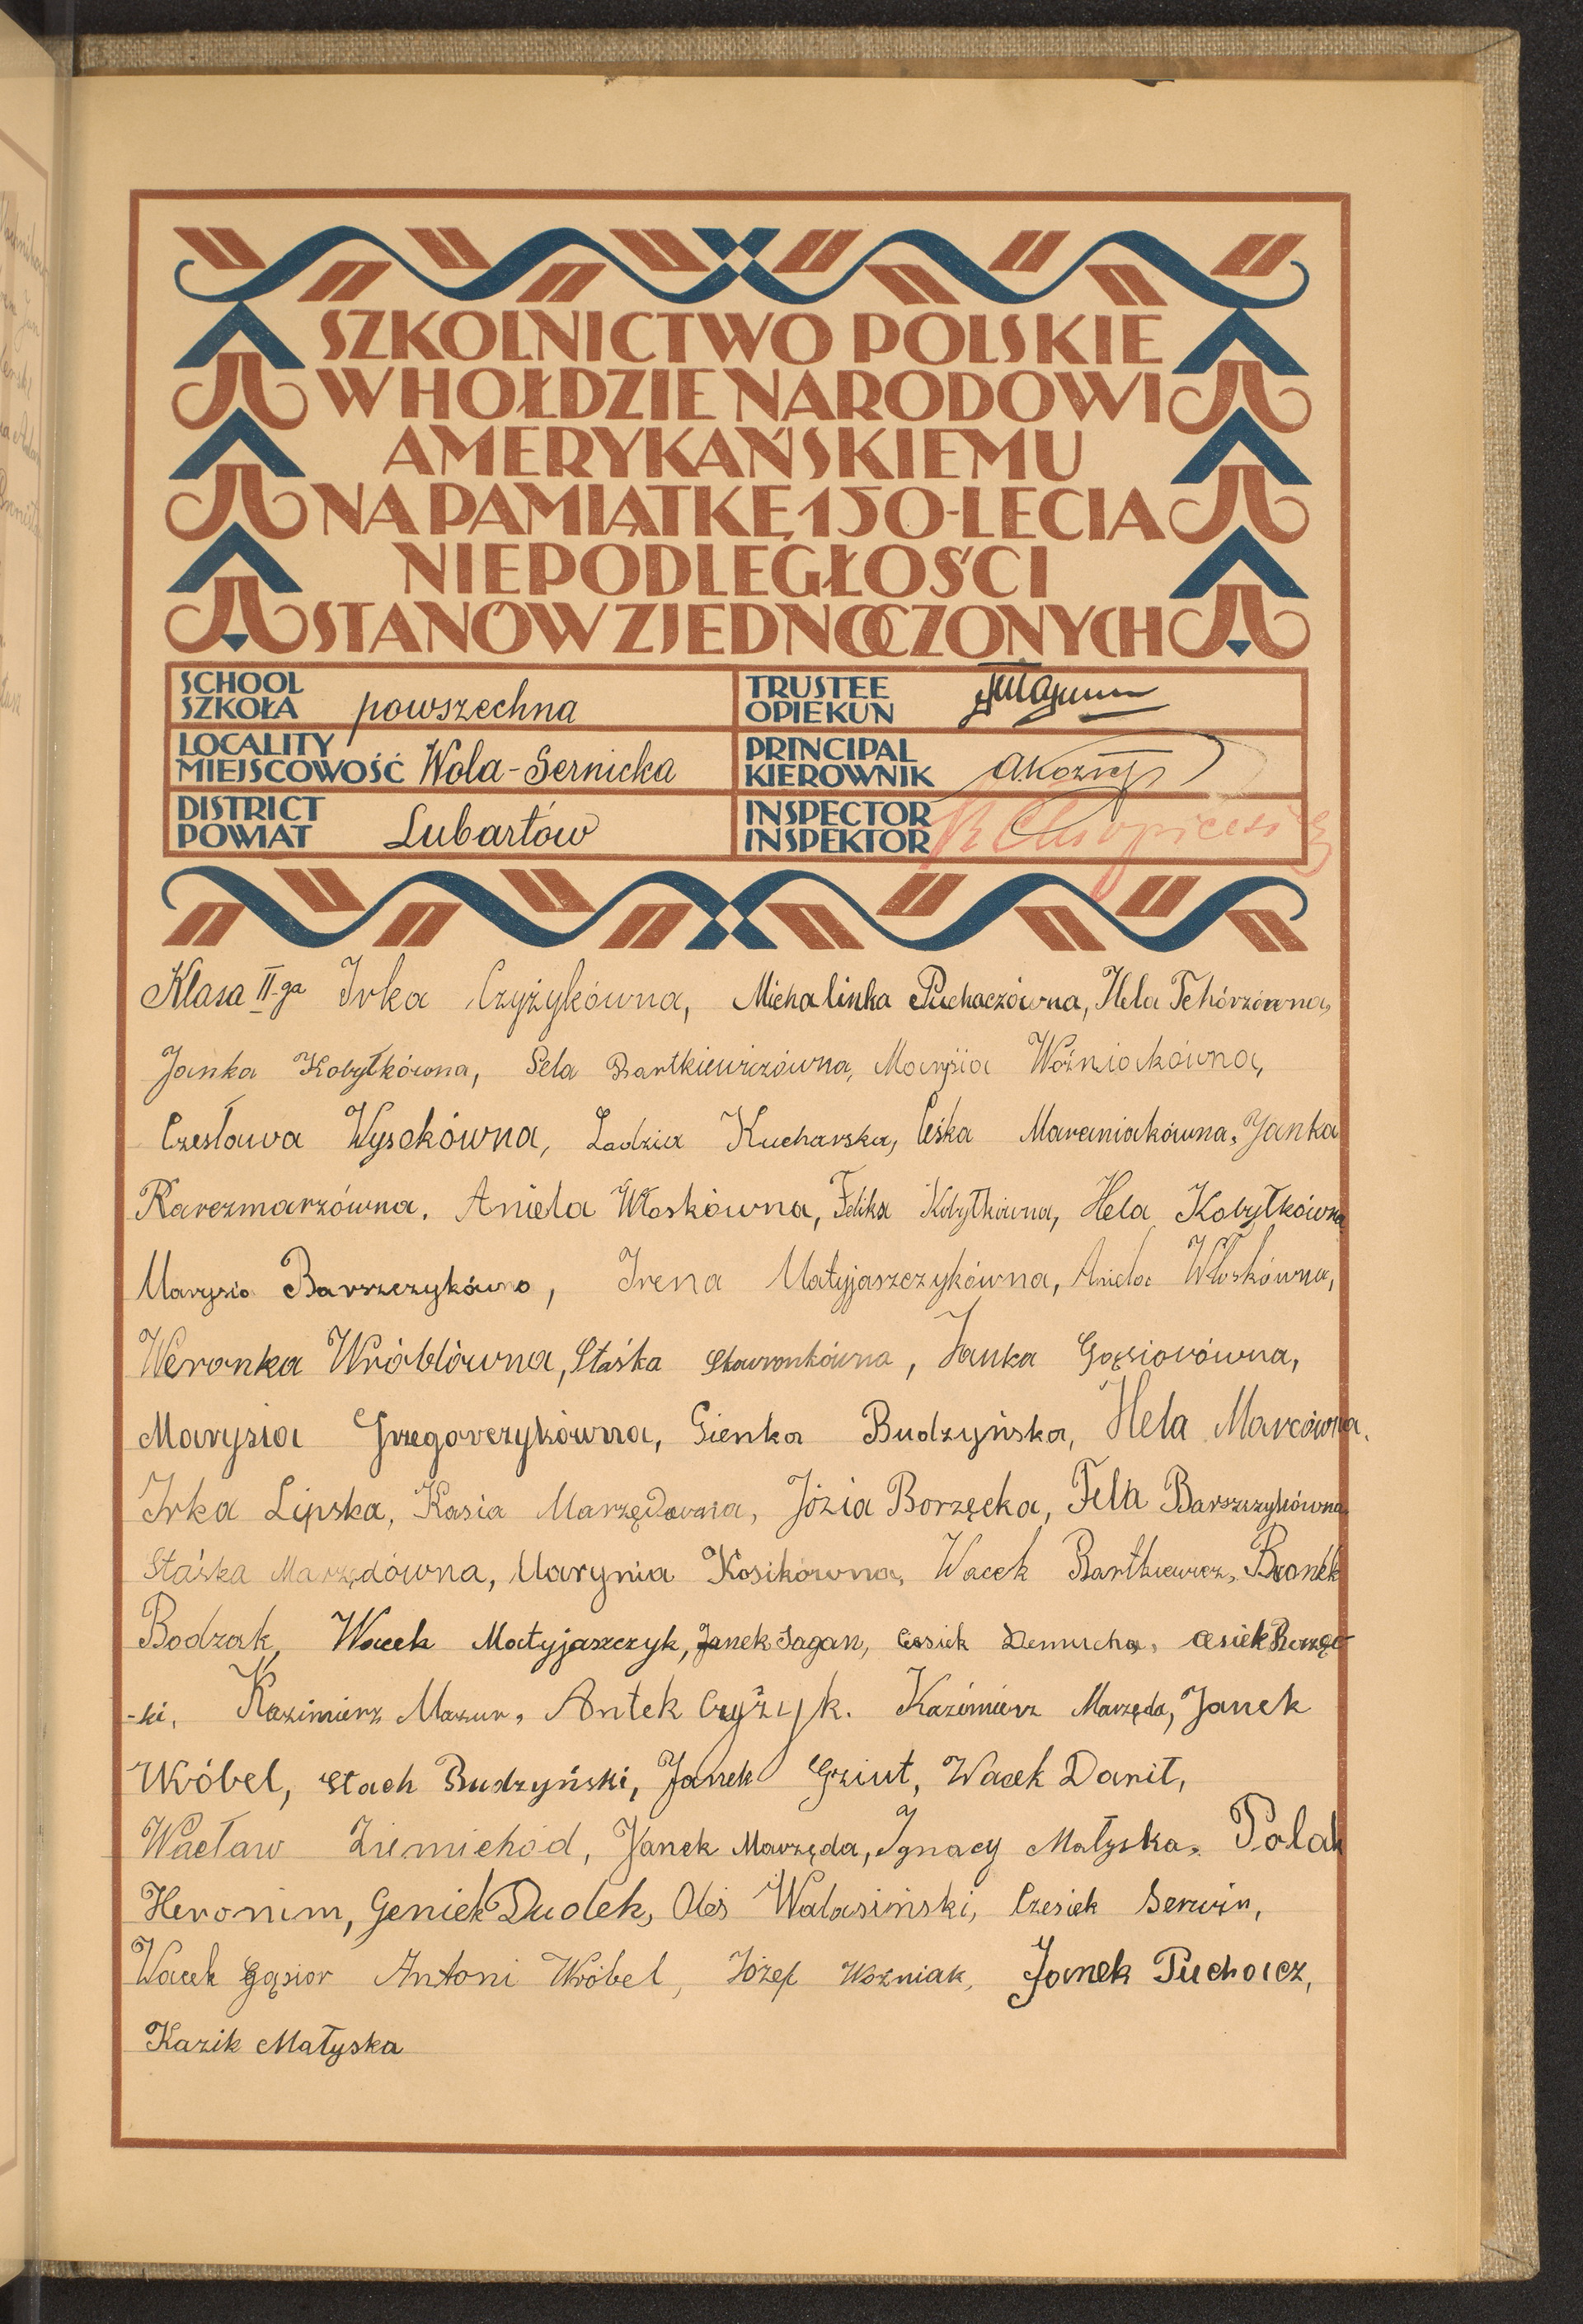 SZKOLNICTWO POLSKIE
W HOŁDZIE NARODOWI
AMERYKAŃSKIEMU
NA PAMIĄTKĘ 150-LECIA
NIEPODLEGŁOŚCI
STANÓW ZJEDNOCZONYCH
SCHOOL
SZKOŁA powszechna
TRUSTEE
OPIEKUN
LOCALITY
MIEJSCOWOŚĆ Wola-Sernicka
PRINCIPAL
KIEROWNIK
DISTRICT
POWIAT Lubartów
INSPECTOR
INSPEKTOR
Klasa II-ga Irka Czyżykówna, Michalinka Puchaczówna, Hela Tchórzówna,
Janka Kobyłkówna, Sela Bartkiewiczówna, Marysia Woźniakówna,
Czesława Wysokówna, Ladzia Kucharska, Ceśka Marciniakówna, Janka
Karczmarzówna, Aniela Włoskówna, Felika Kobyłkówna, Hela Kobyłkówna
Marysia Barszczykówna, Irena Matyjaszczykówna, Aniela Włoskówna,
Weronka Wróblówna, Staśka Skowronkówna, Janka Gąsiorówna,
Marysia Grzegorczykówna, Gienka Budzyńska, Hela Marcówna,
Irka Lipska, Kasia Marzędówna, Józia Borzęcka, Fela Barszczykówna
Staśka Marzędówna, Marynia Kosikówna, Wacek Bartkiewicz, Bronek
Bodzak, Wacek Matyjaszczyk, Janek Sagan, Czesiek Demucha, Cesiek Borzęc
-ki, Kazimierz Mazur, Antek Czyżyk. Kazimierz Marzęda, Janek
Wróbel, Stach Budzyński, Janek Grziut, Wacek Danił,
Wacław Ziemichód, Janek Marzęda, Ignacy Małyska, Polak
Heronim, Geniek Dudek, Oleś Walasiński, Czesiek Serwin,
Wacek Gąsior Antoni Wróbel, Józef Woźniak, Janek Puchacz,
Kazik Małyska